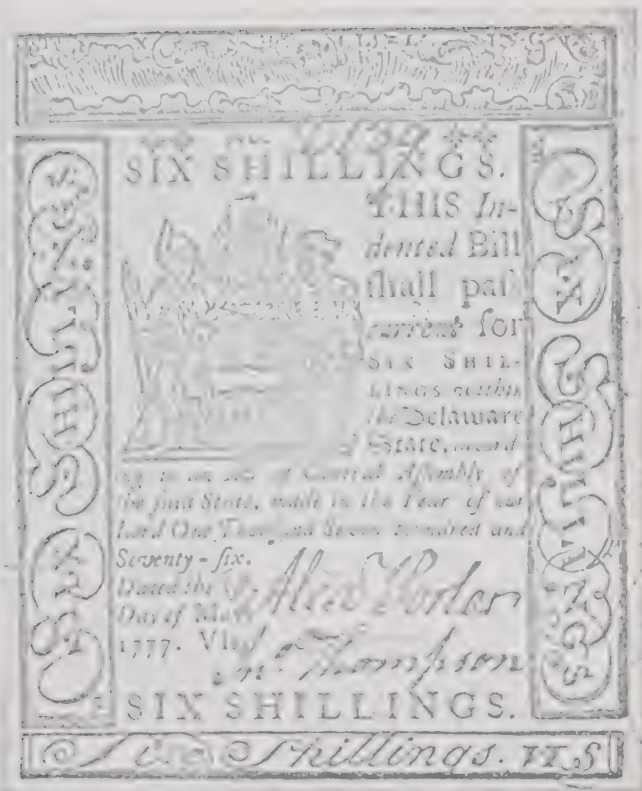 SIX SHILLINGS.
THIS In-
dented Bill
ſhall paſs
current for
SIX SHIL-
LINGS within
the Delaware
State, accord-
ing to an Act of General Aſſembly of
the ſaid State, made in the Year of our
Lord One Thouſand Seven Hundred and
Seventy-ſix.
Dated the
Day of May
1777.
Thompson
SIX SHILLINGS.
SIX SHILLINGS
SIX SHILLINGS
Six Shillings. IIS